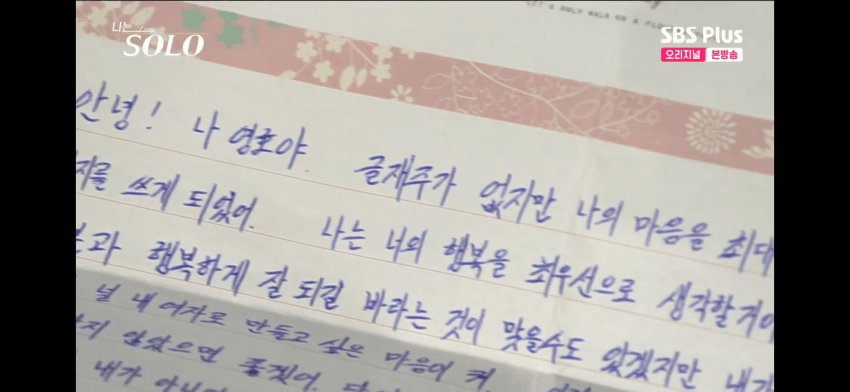 LET'S ONLY WALK ON A FL
나는
SOLO
SBS Plus
오리지널 본방송
안녕! 나 영호야. 글재주가 없지만 나의 마음을 최대
를 쓰게 되었어. 나는 너의 행복을 최우선으로 생각할거야
과 행복하게 잘 되길 바라는 것이 맞을수도 있겠지만 내가
널 내 여자로 만들고 싶은 마음이 커.
지 않았으면 좋겠어.
내가